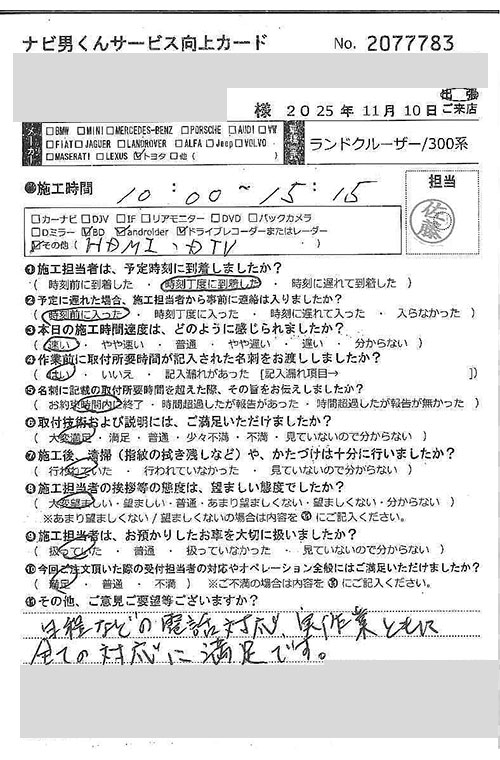 ナビ男くんサービス向上カード No. 2077783
様 2025年11月10日 出張 ご来店
メーカー □BMW □MINI □MERCEDES-BENZ □PORSCHE □AUDI □VW
□FIAT □JAGUER □LANDROVER □ALFA □Jeep □VOLVO
□MASERATI □LEXUS ☑トヨタ □他 ( )
ランドクルーザー/300系
●施工時間 10:00~15:15
担当
佐藤
□カーナビ □DJV □IF □リアモニター □DVD □バックカメラ
□Dミラー ☑BD ☑androider ☑ドライブレコーダーまたはレーダー
☑その他 ( HDMI、DTV )
❶施工担当者は、予定時刻に到着しましたか?
( 時刻前に到着した ・ 時刻丁度に到着した ・ 時刻に遅れて到着した )
❷予定に遅れた場合、施工担当者から事前に連絡は入りましたか?
( 時刻前に入った ・ 時刻丁度に入った ・ 時刻に遅れて入った ・ 入らなかった )
❸本日の施工時間速度は、どのように感じられましたか?
( 速い ・ やや速い ・ 普通 ・ やや遅い ・ 遅い ・ 分からない )
❹作業前に取付所要時間が記入された名刺をお渡ししましたか?
( はい ・ いいえ ・ 記入漏れがあった [記入漏れ項目→ ])
❺名刺に記載の取付所要時間を超えた際、その旨をお伝えしましたか?
( お約束時間内に終了 ・ 時間超過したが報告があった ・ 時間超過したが報告が無かった )
❻取付技術および説明には、ご満足いただけましたか?
( 大変満足 ・ 満足 ・ 普通 ・ 少々不満 ・ 不満 ・ 見ていないので分からない )
❼施工後、清掃(指紋の拭き残しなど)や、かたづけは十分に行いましたか?
( 行われていた ・ 行われていなかった ・ 見ていないので分からない )
❽施工担当者の挨拶等の態度は、望ましい態度でしたか?
( 大変望ましい ・ 望ましい ・ 普通 ・ あまり望ましくない ・ 望ましくない ・ 分からない )
※あまり望ましくない / 望ましくないの場合は内容を⓫にご記入ください。
❾施工担当者は、お預かりしたお車を大切に扱いましたか?
( 扱っていた ・ 普通 ・ 扱っていなかった ・ 見ていないので分からない )
❿今回ご注文頂いた際の受付担当者の対応やオペレーション全般にはご満足いただけましたか?
( 満足 ・ 普通 ・ 不満 ) ※ご不満の場合は内容を⓫にご記入ください。
⓫その他、ご意見ご要望等ございますか?
日程などの電話対応、実作業ともに
全ての対応に満足です。